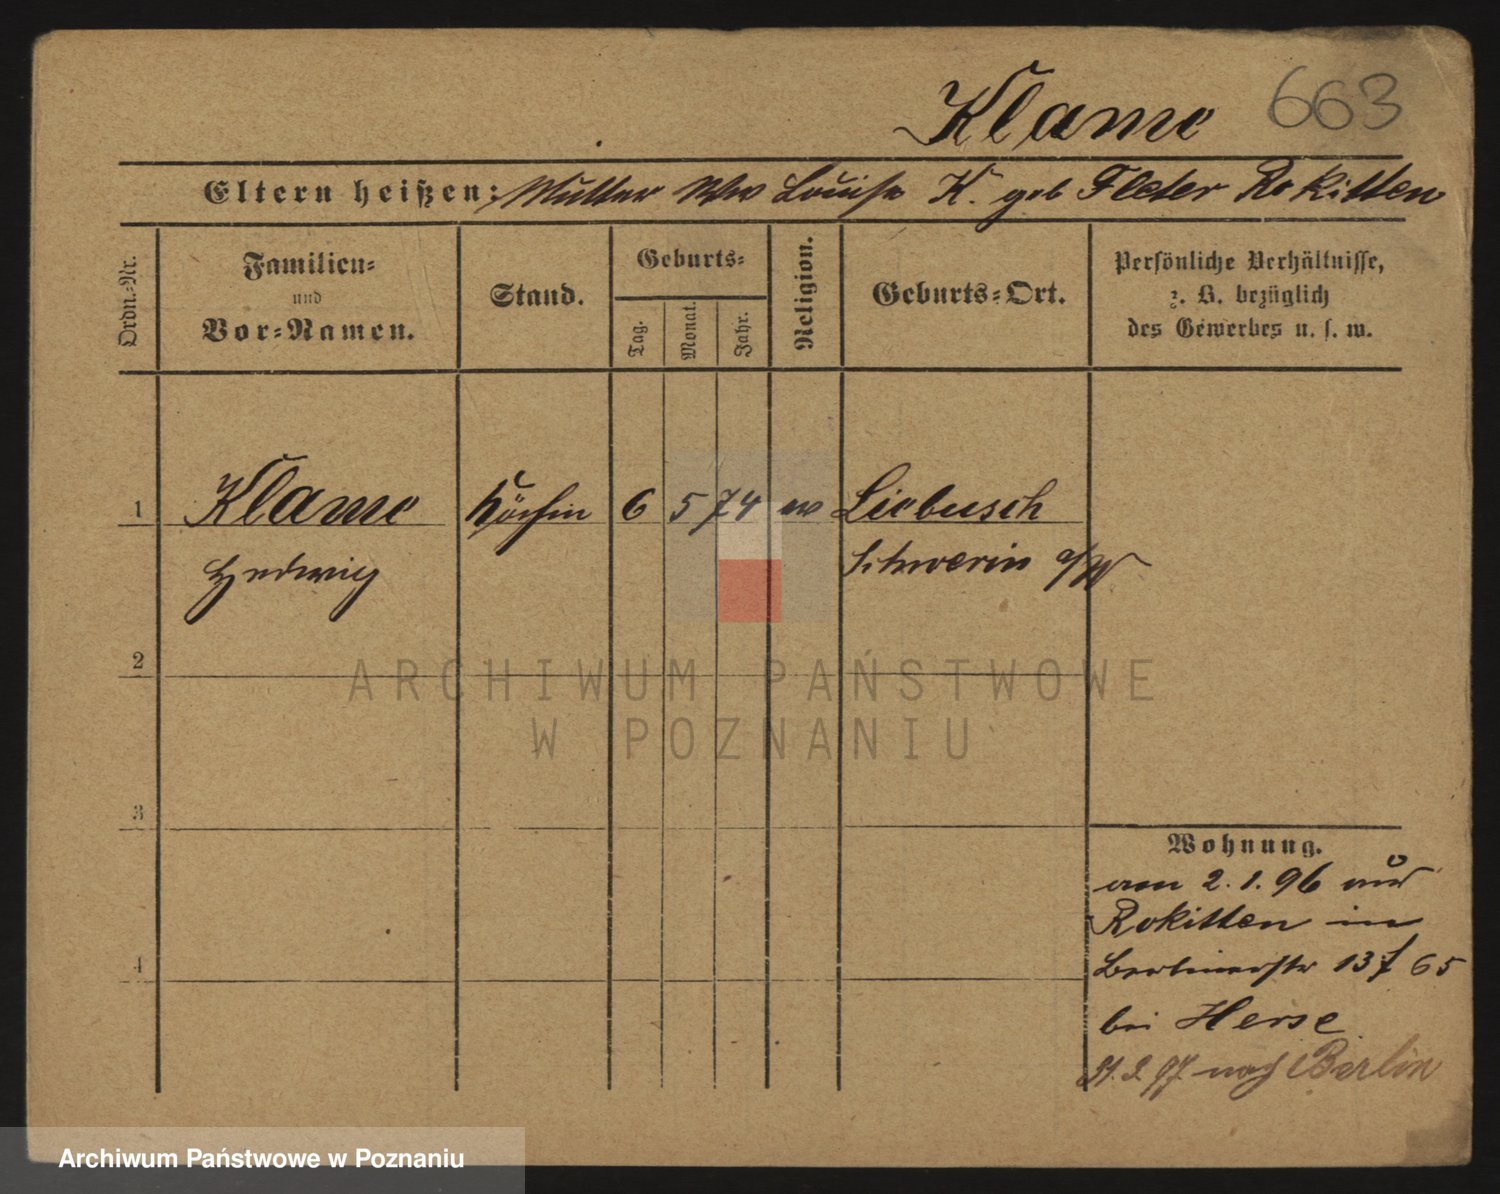 Klame 663
Eltern heißen: Mutter Ww Louise K. geb Fleter Rokitten
Ordn.-Nr.
Familien-
und
Vor-Namen.
Stand.
Geburts-
Tag.
Monat.
Jahr.
Religion.
Geburts-Ort.
Persönliche Verhältnisse,
z. B. bezüglich
des Gewerbes u. s. w.
1 Klame Köchin 6 5 74 ev Liebusch
Hedwig Schwerin a/W
2
ARCHIWUM PAŃSTWOWE
W POZNANIU
3
Wohnung.
am 2. 1. 96 aus
Rokitten in
4
Berlinerstr 13 f 65
bei Herse
97 nach Berlin
Archiwum Państwowe w Poznaniu